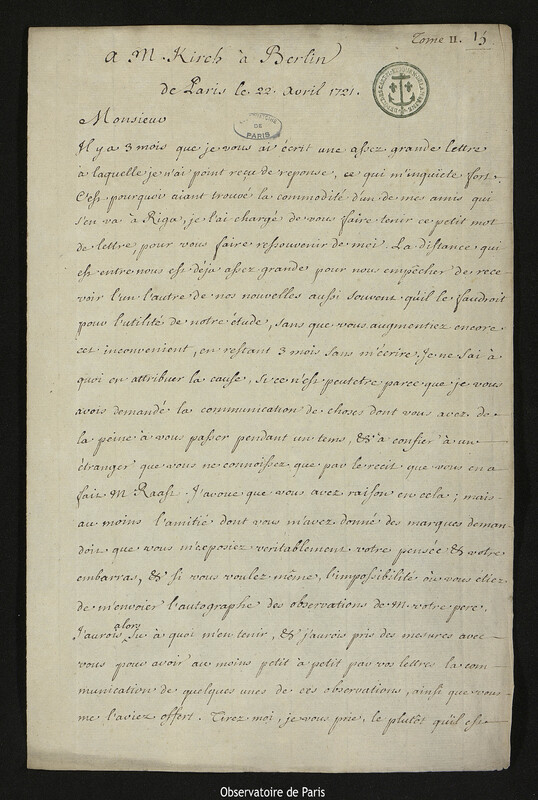 Tome II. 15
A M. Kirch à Berlin
de Paris le 22 avril 1721.
OBSERVATOIRE DE PARIS
Monsieur
Il y a 3 mois que je vous ai écrit une assez grande lettre
à laquelle je n'ai point reçu de reponse, ce qui m'inquiete fort.
C'est pourquoi aiant trouvé la commodité d'un de mes amis qui
s'en va à Riga, je l'ai chargé de vous faire tenir ce petit mot
de lettre, pour vous faire ressouvenir de moi. La distance qui
est entre nous est déja assez grande pour nous empêcher de rece-
voir l'un l'autre de nos nouvelles aussi souvent qu'il le faudroit
pour l'utilité de notre étude, sans que vous augmentiez encore
cet inconvenient, en restant 3 mois sans m'écrire. Je ne sai à
quoi en attribuer la cause, si ce n'est peutetre parce que je vous
avois demandé la communication de choses dont vous avez de
la peine à vous passer pendant un tems, & à confier à un
étranger que vous ne connoissez que par le recit que vous en a
fait M Raast. J'avoue que vous avez raison en cela; mais
au moins l'amitié dont vous m'avez donné des marques deman-
doit que vous m'exposiez veritablement votre pensée & votre
embarras, & si vous voulez même, l'impossibilité où vous étiez
de m'envoier l'autographe des observations de M. votre pere.
J'aurois alors su à quoi m'en tenir, & j'aurois pris des mesures avec
vous pour avoir au moins petit à petit par vos lettres la com-
munication de quelques unes de ces observations, ainsi que vous
me l'aviez offert. Tirez moi, je vous prie, le plutôt qu'il est
Observatoire de Paris